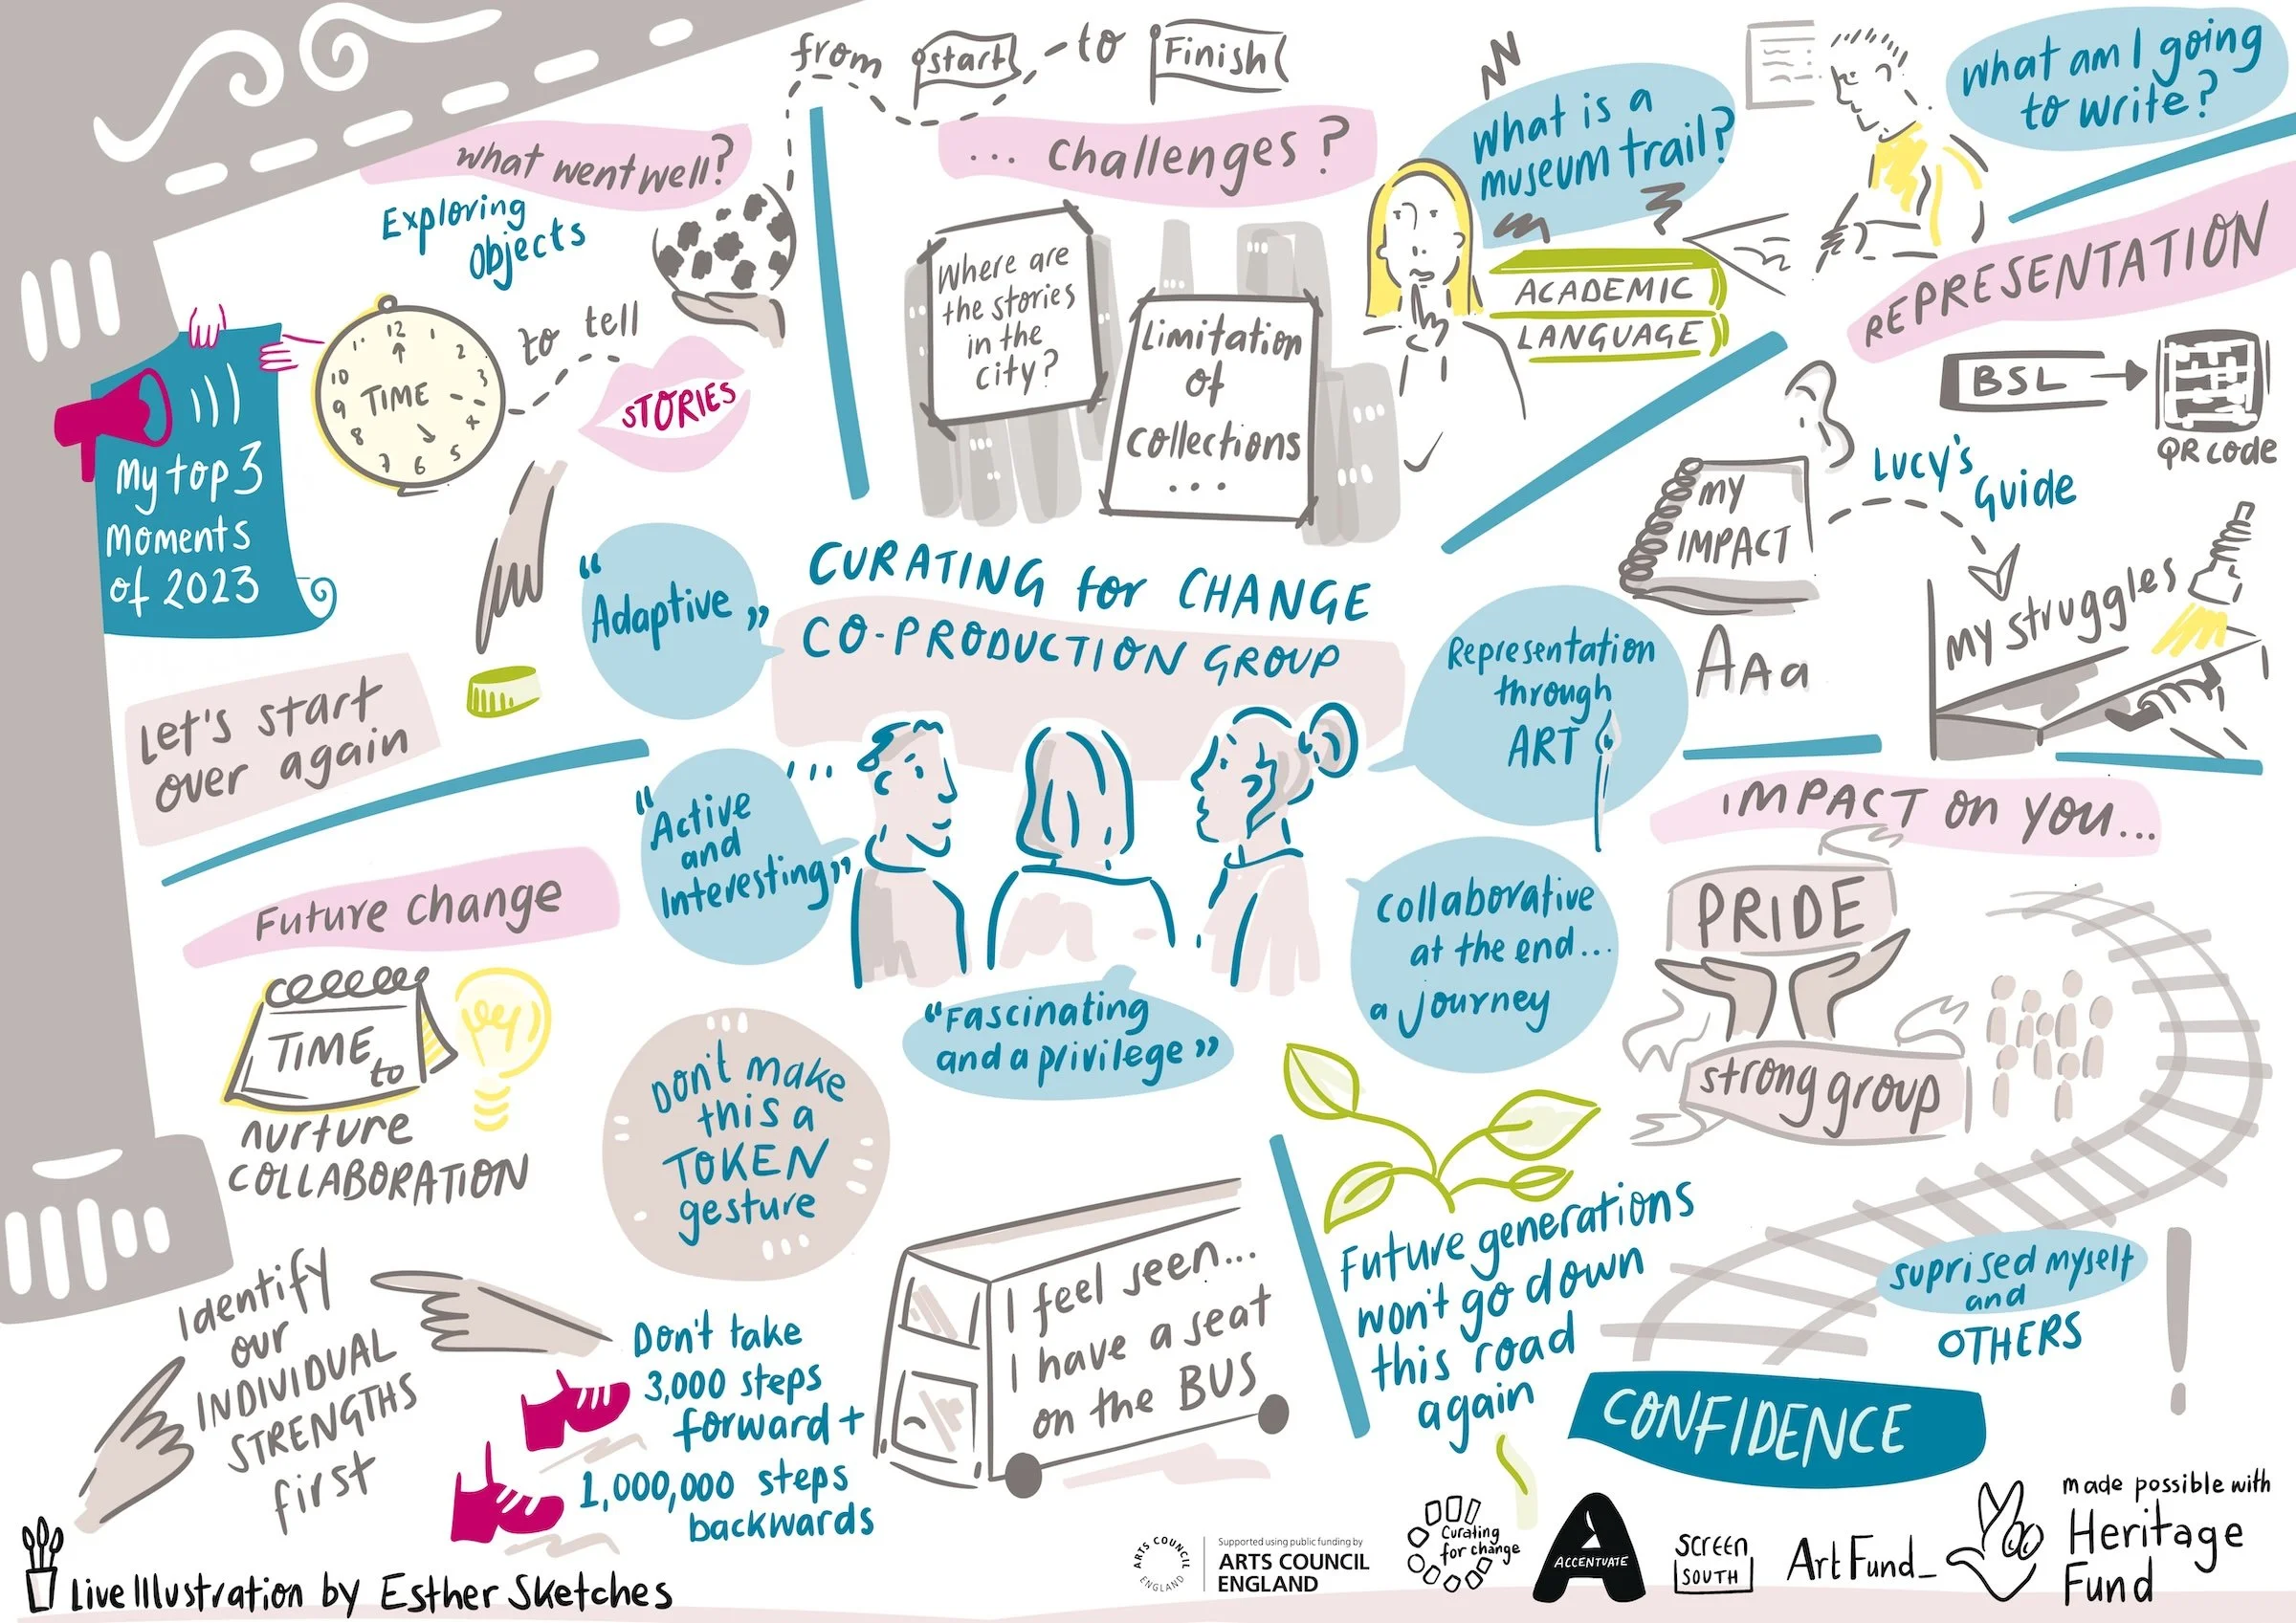 from start - to Finish
what went well?
Exploring
objects
to tell
STORIES
12
1
2
3
4
5
6
7
8
9
10
1.
TIME
My top 3
Moments
of 2023
Let's start
over again
... Challenges?
Where are
the stories
in the
city?
Limitation
of
collections
...
What is a
museum trail?
ACADEMIC
LANGUAGE
What am I going
to write?
REPRESENTATION
BSL
QR code
Lucy's
Guide
MY
IMPACT
AAa
My struggles
CURATING for CHANGE
CO-PRODUCTION GROUP
"Adaptive"
"Active
and
Interesting"
"Fascinating
and a privilege"
Representation
through
ART
Collaborative
at the end...
a journey
Future change
TIME
to
nurture
COLLABORATION
Don't make
this a
TOKEN
gesture
Identify
our
INDIVIDUAL
STRENGTHS
first
Don't take
3,000 steps
forward +
1,000,000 steps
backwards
I feel seen...
I have a seat
on the BUS
IMPACT on YOU...
PRIDE
strong group
Future generations
won't go down
this road
again
suprised myself
and
OTHERS
!
CONFIDENCE
Live Illustration by Esther Sketches
ARTS COUNCIL
ENGLAND
Supported using public funding by
ARTS COUNCIL
ENGLAND
Curating
for change
A
ACCENTUATE
SCREEN
SOUTH
ArtFund_
made possible with
Heritage
Fund